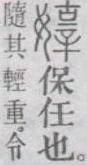 嫴保任也。
隨其輕重。令